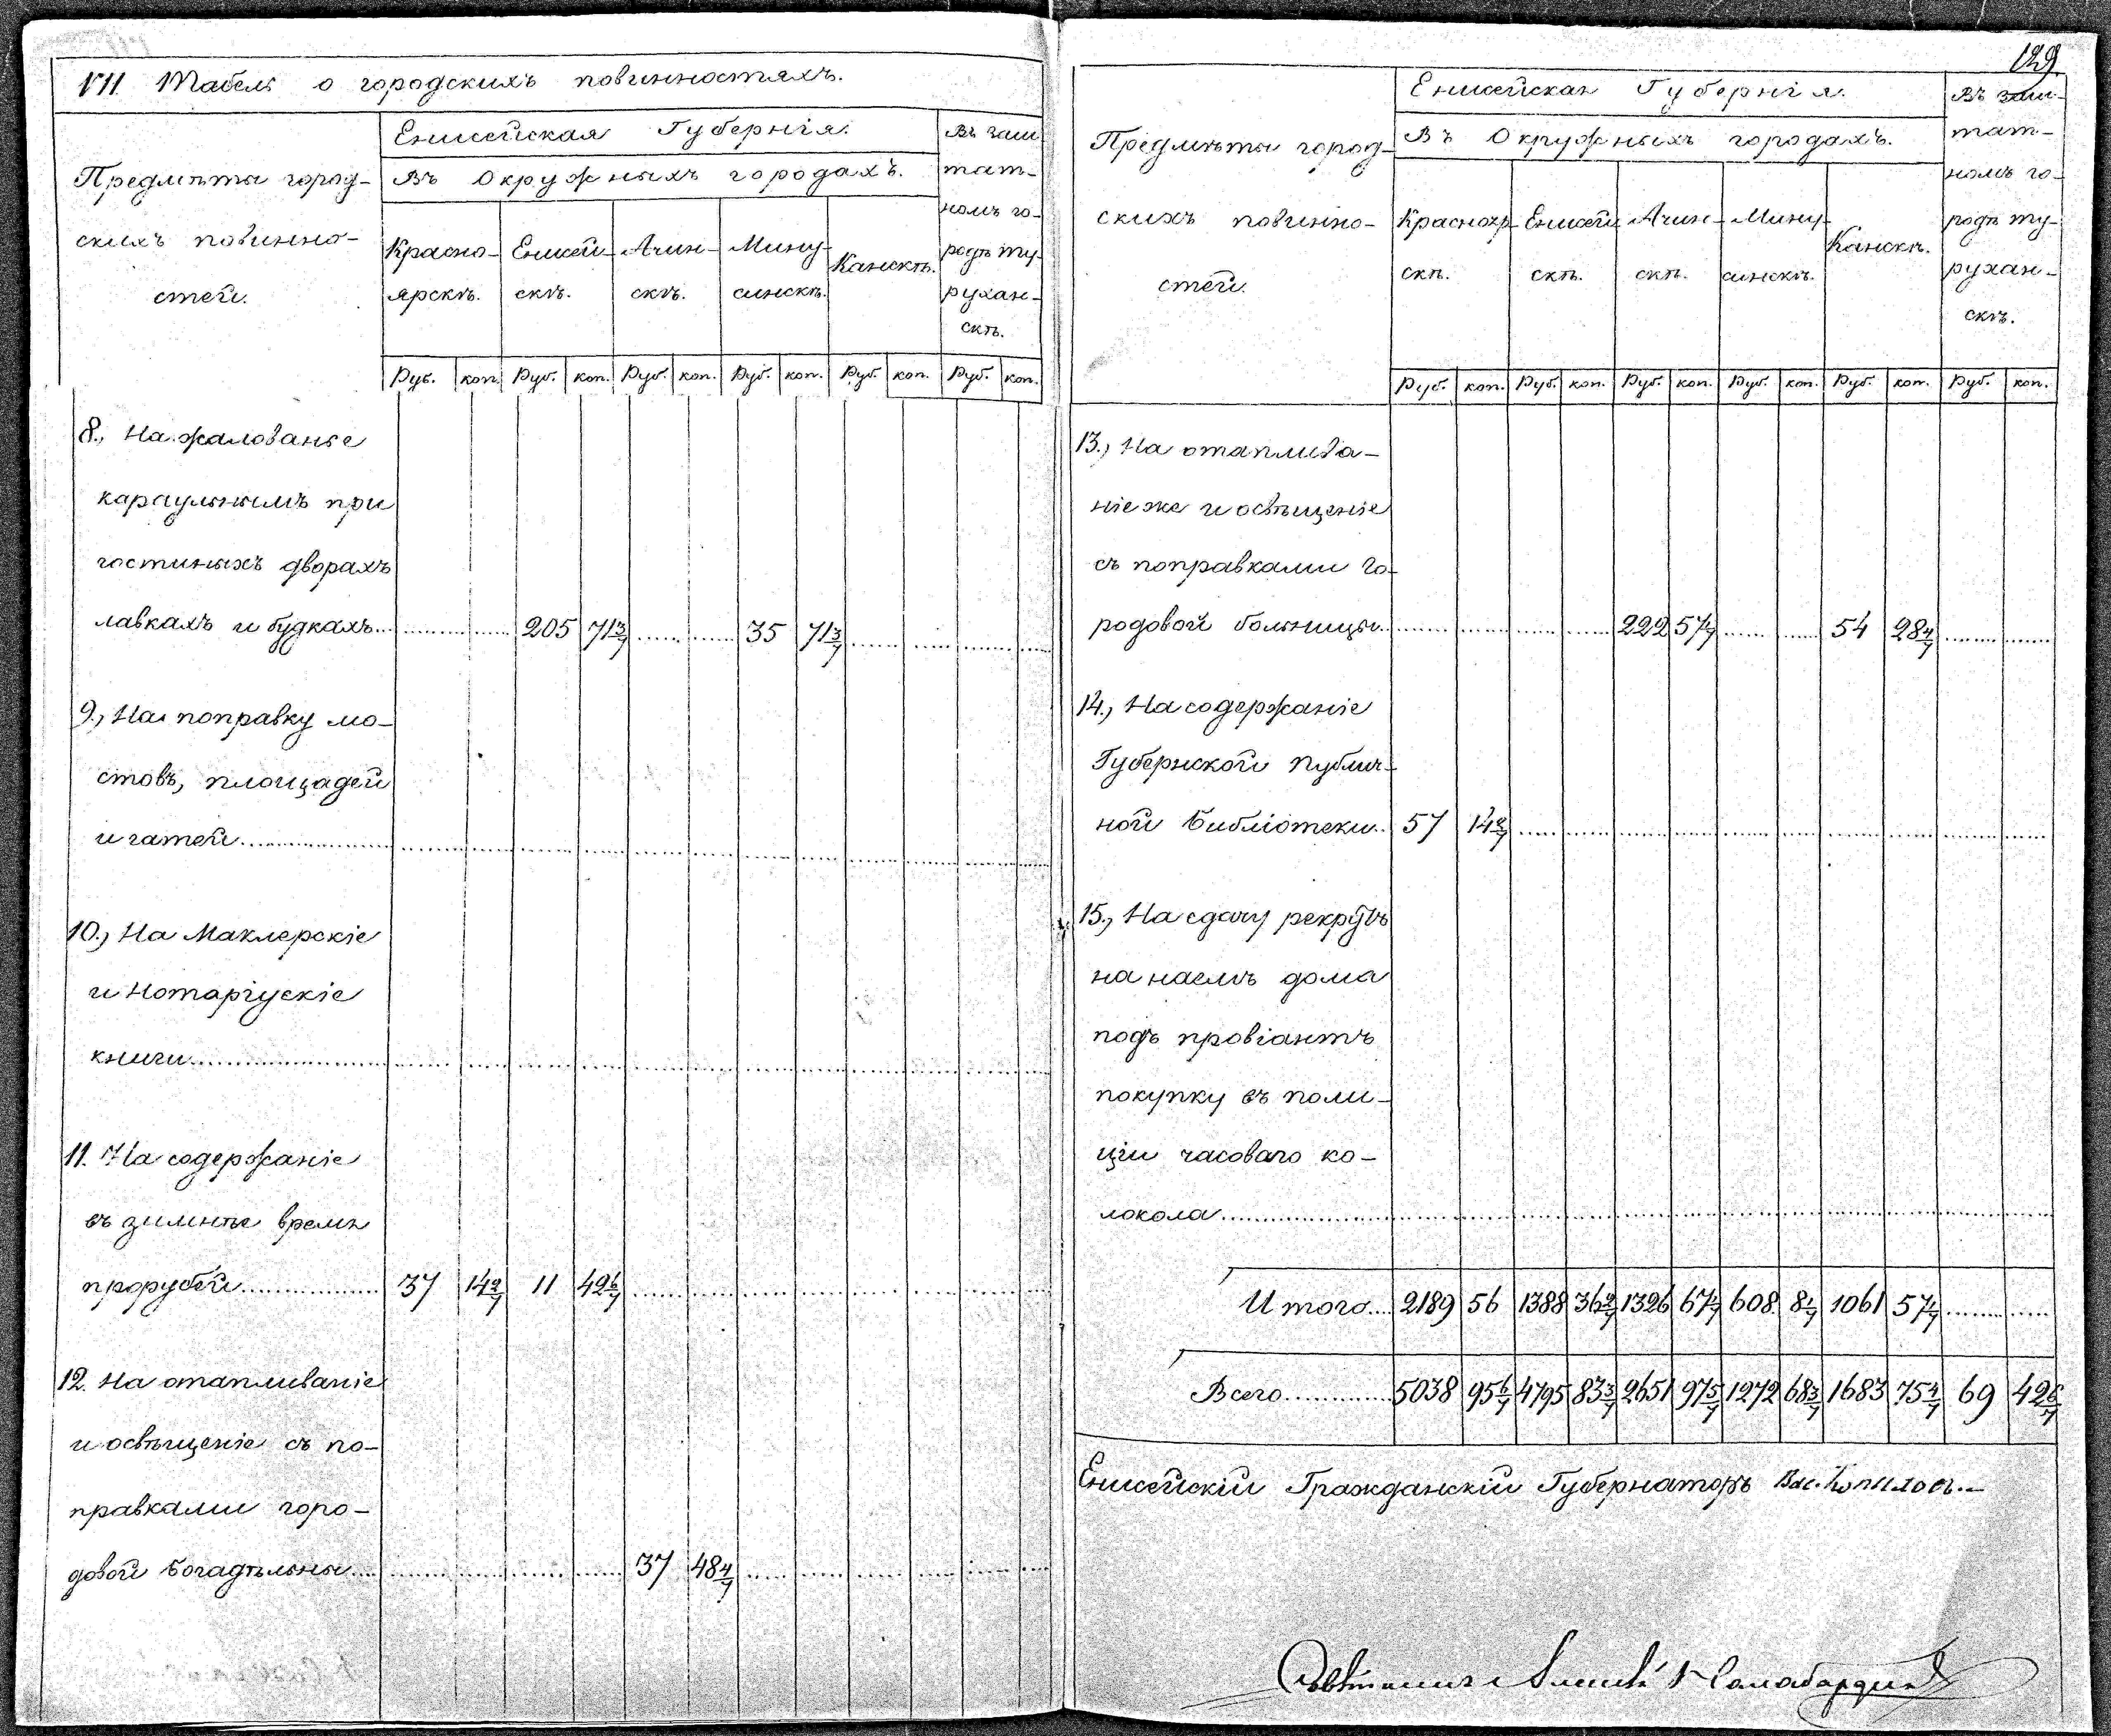 VII Табель о городскихъ повинностяхъ.
Предмѣты город-
скихъ повинно-
стей.
Енисейская Губернія.
Въ Окружныхъ городахъ.
Красно-
ярскѣ.
Енисей-
скѣ.
Ачин-
скѣ.
Мину-
синскѣ.
Канскѣ.
Въ заш
тат-
номъ го-
родѣ Ту-
рухан-
скѣ.
Руб. коп. Руб. коп. Руб. коп. Руб. коп. Руб. коп. Руб. коп.
8., На жалованье
караульнымъ при
гостиныхъ дворахъ
лавкахъ и будкахъ... 205 71 3/7 35 71 3/7
9., На поправку мо-
стовъ, площадей
и гатей
10., На Маклерскіе
и Нотаріускіе
книги
11. На содержаніе
въ зимнѣе время
прорубей 37 14 2/7 11 42 6/7
12. На отапливаніе
и освѣщеніе съ по-
правками горо-
довой Богадѣльны 37 48 4/7
129
Предмѣты город-
скихъ повинно-
стей.
Енисейская Губернія.
Въ Окружныхъ городахъ.
Краснояр-
скѣ.
Енисей
скѣ.
Ачин-
скѣ.
Мину-
синскѣ.
Канскѣ.
Въ заш-
тат-
номъ го-
родѣ Ту-
рухан-
скѣ.
Руб. коп. Руб. коп. Руб. коп. Руб. коп. Руб. коп. Руб. коп.
13., На отаплива-
ніе же и освѣщеніе
съ поправками го-
родовой больницы 222 57 1/7 54 28 4/7
14., На содержаніе
Губернской Публич-
ной Библіотеки 57 14 2/7
15., На сдачу рекрутъ
на наемъ дома
подъ провіантъ
покупку въ поли-
ціи часоваго ко-
локола
Итого 2189 56 1388 36 2/7 1326 67 1/7 608 8 1/7 1061 57 1/7
Всего 5038 95 6/7 4795 83 3/7 2651 97 5/7 1272 68 3/7 1683 75 4/7 69 42 6/7
Енисейскій Гражданскій Губернаторъ Вас. Копыловъ.-